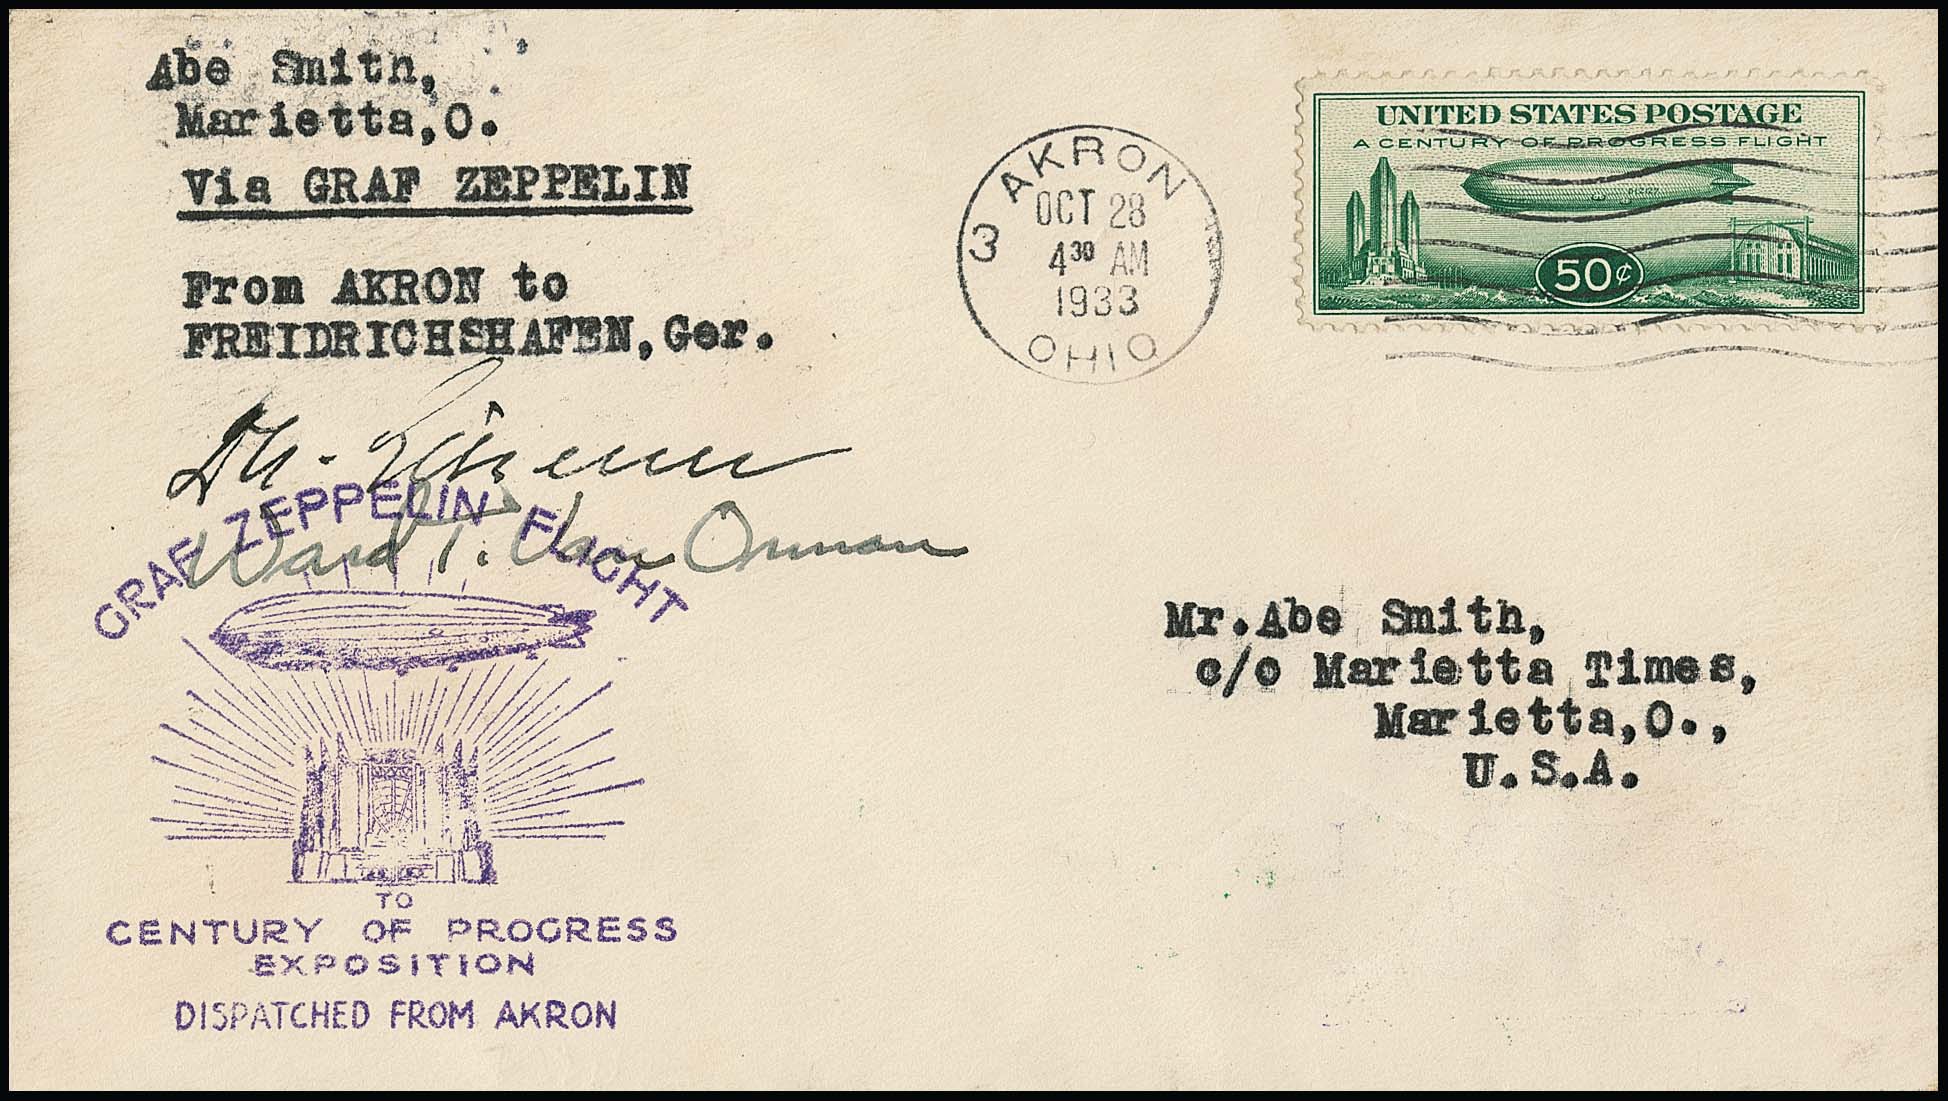 Abe Smith,
Marietta,O.
Via GRAF ZEPPELIN
From AKRON to
FREIDRICHSHAFEN, Ger.
UNITED STATES POSTAGE
A CENTURY OF PROGRESS FLIGHT
50¢
3 AKRON
OCT 28
4 30 AM
1933
OHIO
Ward T. Van Orman
GRAF ZEPPELIN FLIGHT
TO
CENTURY OF PROGRESS
EXPOSITION
DISPATCHED FROM AKRON
Mr.Abe Smith,
c/o Marietta Times,
Marietta,O.,
U.S.A.